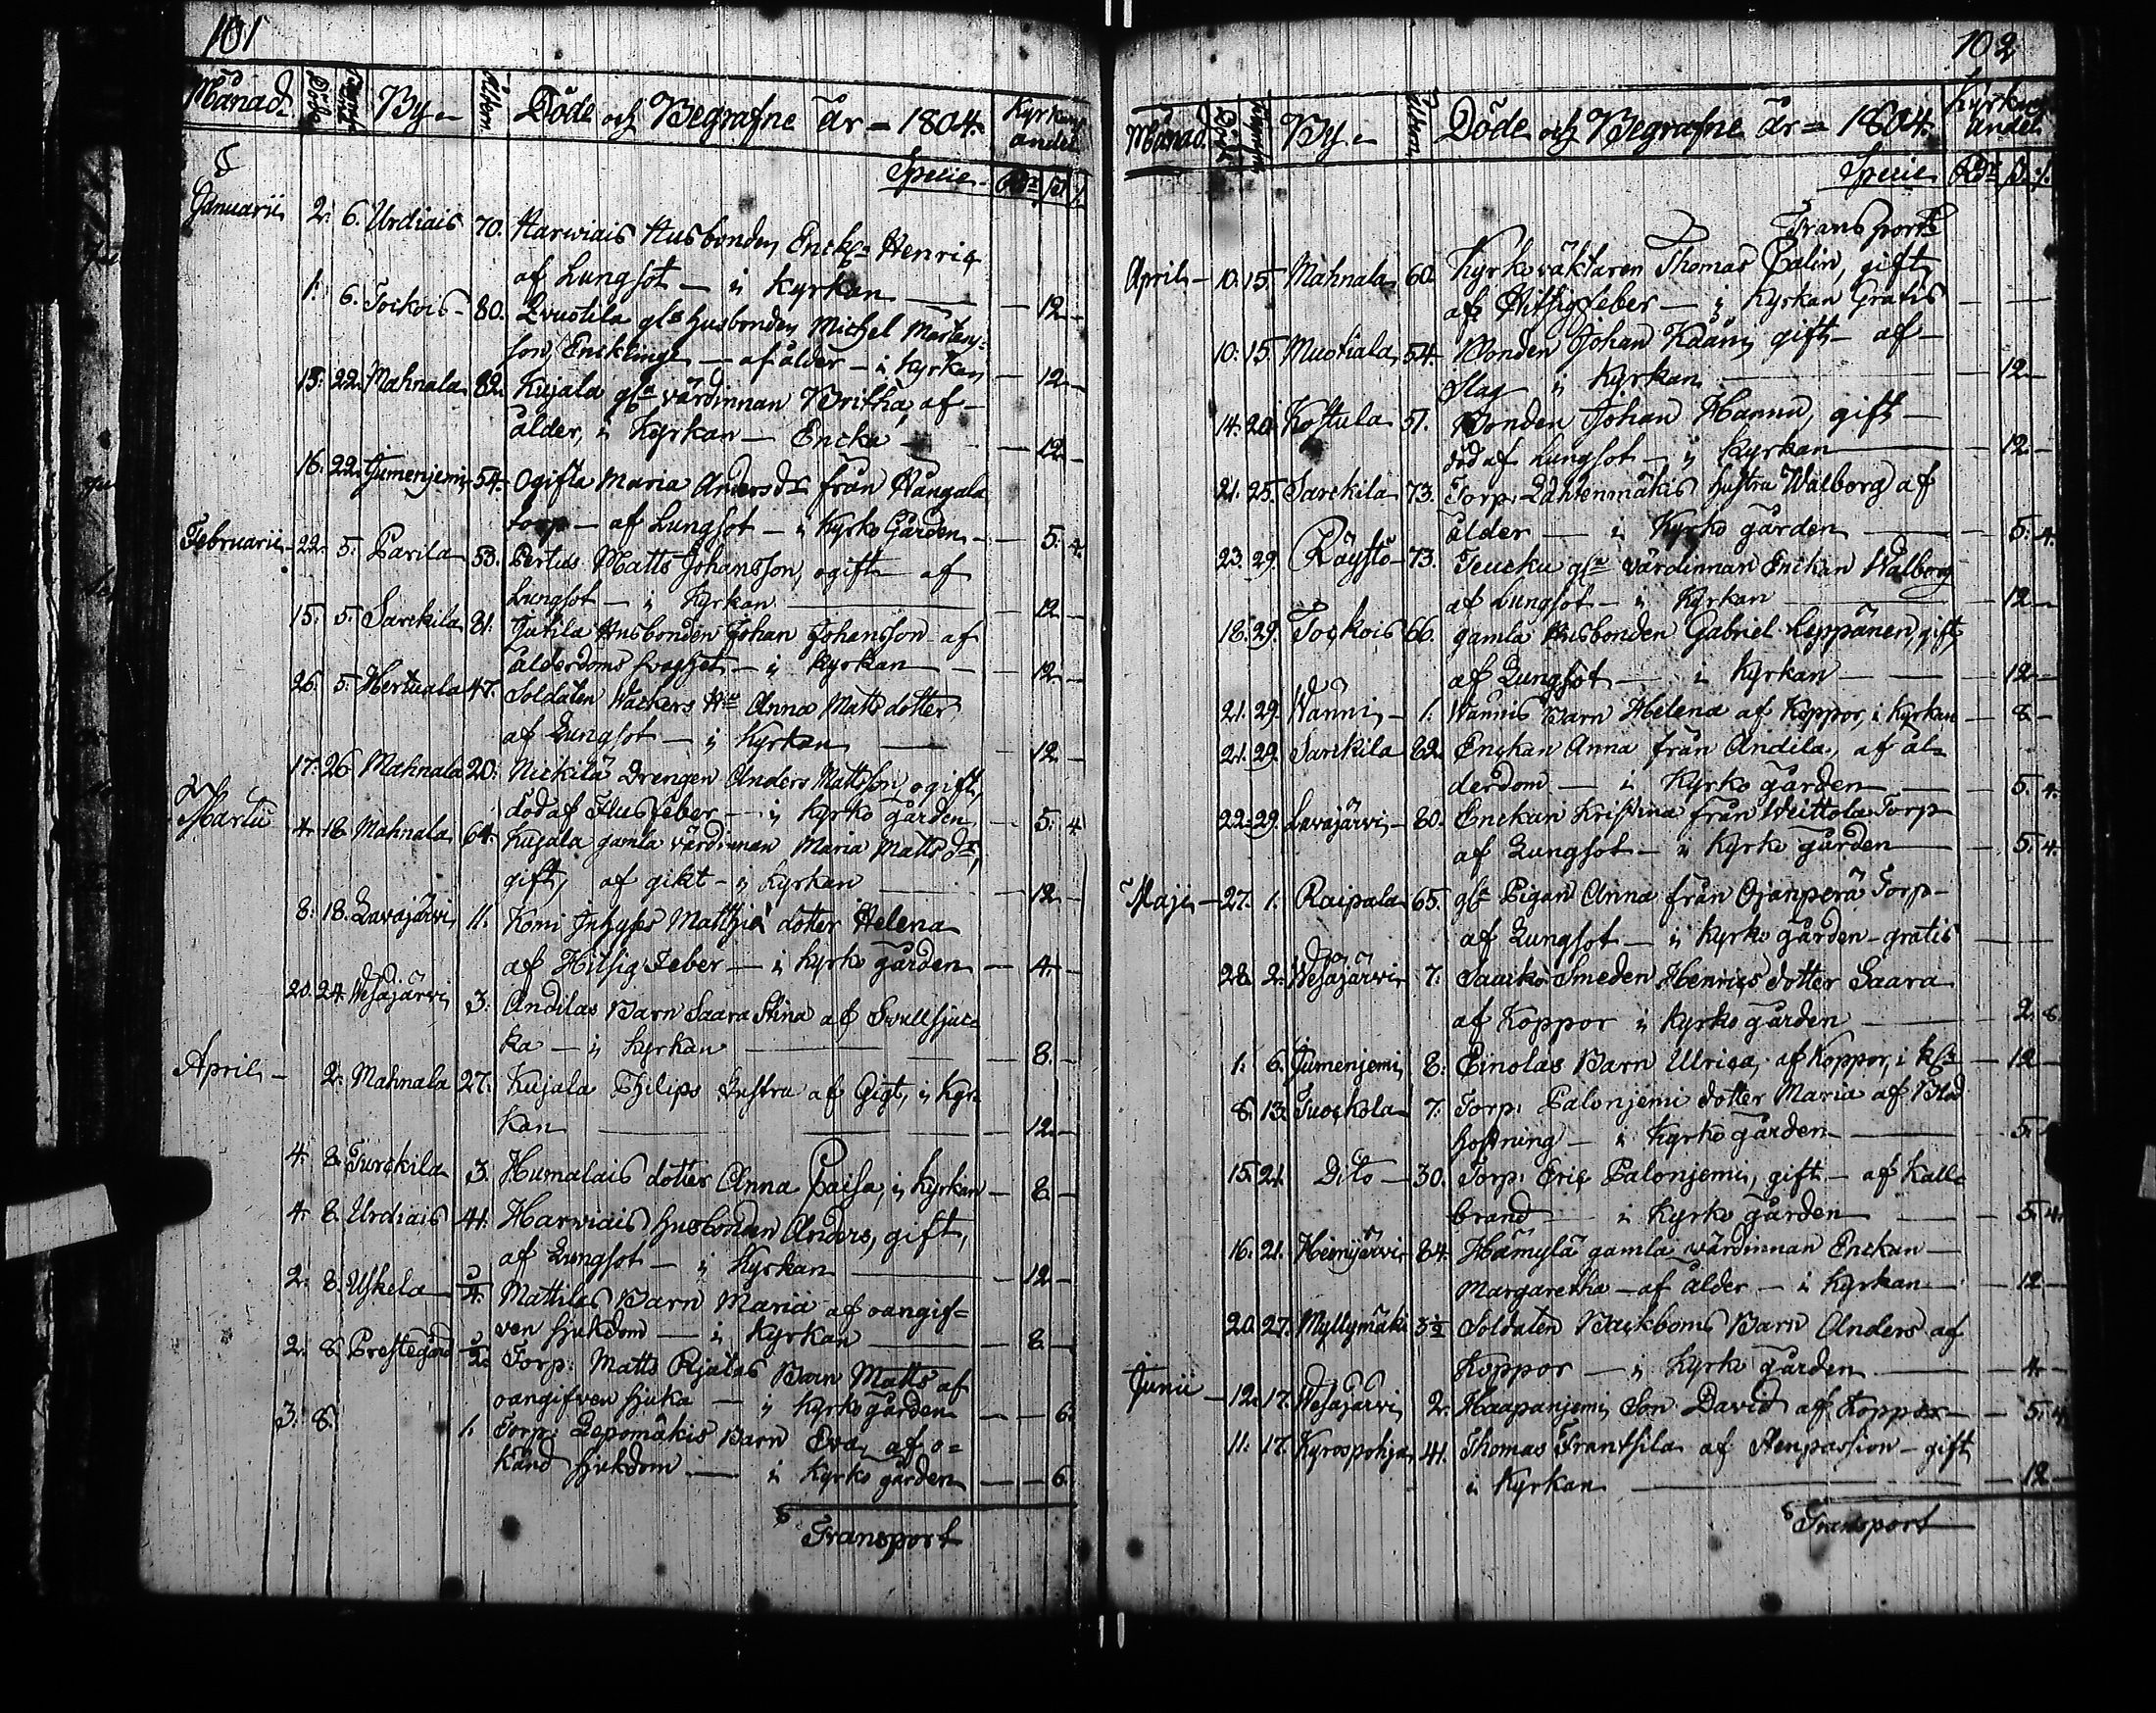 101
Månad. Döde By. Åldern Döde och Begrafne År = 1804. Kyrkans andel
Specie. Rdr ß
Januarii 2. 6. Urdiais 70. Harwiais Husbonden Enckl. Henric
af Lungsot — i Kyrkan — 12 —
1. 6. Tockois 80. gla husbonden Michel Martens=
son, Encklinge — af ålder — i Kyrkan — 12 —
15. 22. Mahnala 82. Kujala gla värdinnan Britha, af
ålder, i Kyrkan — Encka — 12 —
16. 22. Jumenjemi 54. Ogifta Maria Andersdr från Hangala
torp — af Lungsot — i Kyrko Gården — 5. 4.
Februarii 22. 5. Parila 53. Pertus Matts Johansson, ogift af
Lungsot — i Kyrkan — 12 —
15. 5. Sarckila 81. Jutila Husbonden Johan Johansson af
ålderdoms svaghet — i Kyrkan — 12 —
26. 5. Hertuala 47. Soldaten Wackers Hu Anna Matts dotter
af Lungsot — i Kyrkan — 12 —
17. 26. Mahnala 20. Nickilä Drengen Anders Mattsson, ogift,
död af Flusfeber — i Kyrko gården — 5. 4
Martii 4. 18. Mahnala 64. Kujala gamla värdinnan Maria Matts dr,
gift, af gikt — i Kyrkan — 12 —
8. 18. Lavajärvi 11. Komi Inhyses Matthiæ dotter Helena
af Hitsig Feber — i Kyrko gården — 4 —
20. 24. Wesajärvi 3. Andilas Barn Saara Stina af Svullsjuc=
ka — i Kyrkan — 8. —
April — 2. Mahnala 27. Kujala Philips hustra af Gigt, i Kyr=
kan — 12. —
4. 8. Turckila 3. Humalais dotter Anna Caisa, i Kyrkan — 8 —
4. 8. Urdiais 41. Harwiais husbonden Anders, gift,
af Lungsot — i Kyrkan — 12 —
2. 8. Uskela Mattilas Barn Maria af oangif=
ven sjukdom — i Kyrkan — 8 —
2. 8. Prestegård Torp. Matts Rjalas Barn Matts af
oangifven sjuka — i Kyrko gården — 6.
3. 8. 1. Torp. Lepomäkis Barn Eva, af o=
känd sjukdom — i Kyrko gården — 6.
Transport
102
Månad. Döde By. Åldern Döde och Begrafne År = 1804. Kyrkans andel
Specie Rdr ß
Transport
April — 10. 15. Mahnala 60. Kyrkoväktaren Thomas Palin, gift
af Hitsigfeber — i Kyrkan Gratis — —
10. 15. Muotiala 54. Bonden Johan Kaani gift — af —
slag i Kyrkan — 12 —
14. 20. Kostula 51. Bonden Johan Hannu, gift —
död af Lungsot — i Kyrkan — 12 —
21. 25. Sarckila 73. Torp. Lähtenmäkis hustra Walborg af
ålder — i Kyrko gården — 5. 4.
23. 29. Röystö 73. Teucku gla värdinnan Enckan Walborg
af Lungsot — i Kyrkan — 12 —
18. 29. Tockois 66. gamla Husbonden Gabriel Leppänen, gift,
af Lungsot — i Kyrkan — 12 —
21. 29. Wänni 1. Wännis Barn Helena af Koppor, i Kyrkan — 8 —
21. 29. Sarckila 82. Enckan Anna från Andila, af ål=
derdom — i Kyrko gården — 5. 4.
22. 29. Lavajärvi 80. Enckan Kristina från Weittola Torp
af Lungsot — i Kyrko gården — 5. 4.
Maji — 27. 1. Raipala 65. gla Pigan Anna från Ojanperä Torp —
af Lungsot — i Kyrko gården — gratis — —
28. 2. Wesajärvi 7. Smeden Henrics dotter Saara
af Koppor i Kyrko gården — 2. 8.
1. 6. Jumenjemi 8. Einolas Barn Ulrica, af Koppor, i — 12 —
8. 13. Tuockola 7. Torp. Palonjemi dotter Maria af Blod
hostning — i Kyrko gården — 5.
15. 21. Dito — 30. Torp. Eric Palonjemi, gift — af Kall=
brand — i Kyrko gården — 5. 4.
16. 21. Heinjärvi 84. Hämylä gamla värdinnan Enckan —
Margaretha — af ålder — i Kyrkan — 12 —
20. 27. Myllymäki 3½ Soldaten Backboms Barn Anders af
Koppor — i Kyrko gården — 4 —
Junii — 12. 17. Wesajärvi 2. Haapanjemi Son David af Koppor — 5. 4.
11. 17. Kyrospohja 41. Thomas Frantsila af Stenpassion — gift
i Kyrkan — 12
Transport